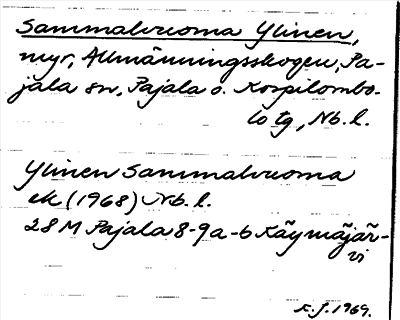 Sammalvuoma Ylinen,
myr, Allmänningsskogen, Pa-
jala sn, Pajala o. Korpilombo-
lo tg, Nb. l.
Ylinen Sammalvuoma
ek (1968) Nb. l.
28 M Pajala 8-9 a-b Käymäjär-
vi
K. J. 1969.